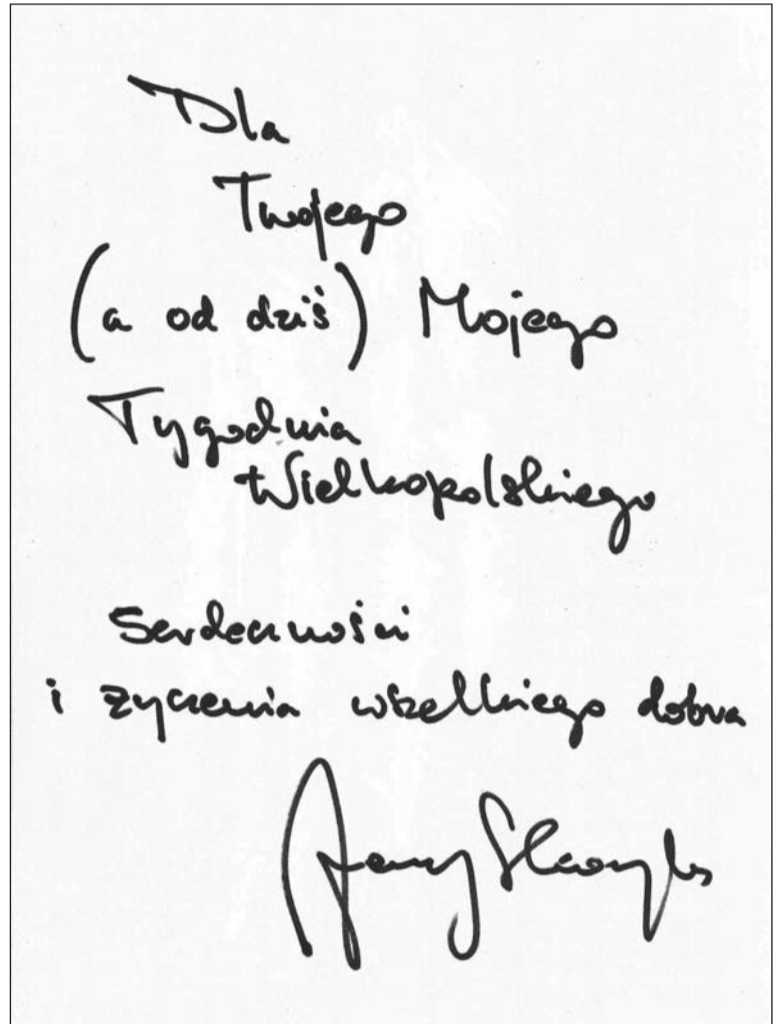 Dla
Twojego
(a od dziś) Mojego
Tygodnia
Wielkopolskiego
Serdeczności
i życzenia wszelkiego dobra
Jerzy Skoczylas